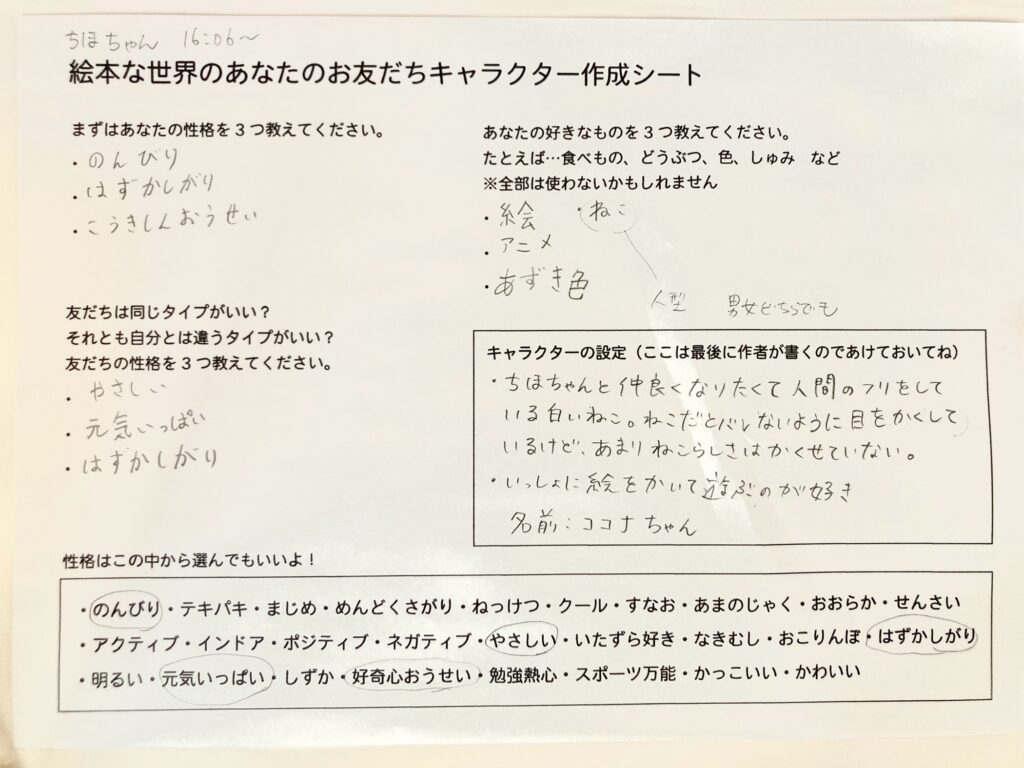 ちほちゃん 16:06〜
絵本な世界のあなたのお友だちキャラクター作成シート
まずはあなたの性格を3つ教えてください。
・のんびり
・はずかしがり
・こうきしんおうせい
あなたの好きなものを3つ教えてください。
たとえば…食べもの、どうぶつ、色、しゅみ など
※全部は使わないかもしれません
・絵 ・ねこ
・アニメ
・あずき色
人型 男女どちらでも
友だちは同じタイプがいい?
それとも自分とは違うタイプがいい?
友だちの性格を3つ教えてください。
・やさしい
・元気いっぱい
・はずかしがり
キャラクターの設定(ここは最後に作者が書くのであけておいてね)
・ちほちゃんと仲良くなりたくて人間のフリをして
いる白いねこ。ねこだとバレないように目をかくして
いるけど、あまりねこらしさはかくせていない。
・いっしょに絵をかいて遊ぶのが好き
名前:ココナちゃん
性格はこの中から選んでもいいよ!
・のんびり・テキパキ・まじめ・めんどくさがり・ねっけつ・クール・すなお・あまのじゃく・おおらか・せんさい
・アクティブ・インドア・ポジティブ・ネガティブ・やさしい・いたずら好き・なきむし・おこりんぼ・はずかしがり
・明るい・元気いっぱい・しずか・好奇心おうせい・勉強熱心・スポーツ万能・かっこいい・かわいい